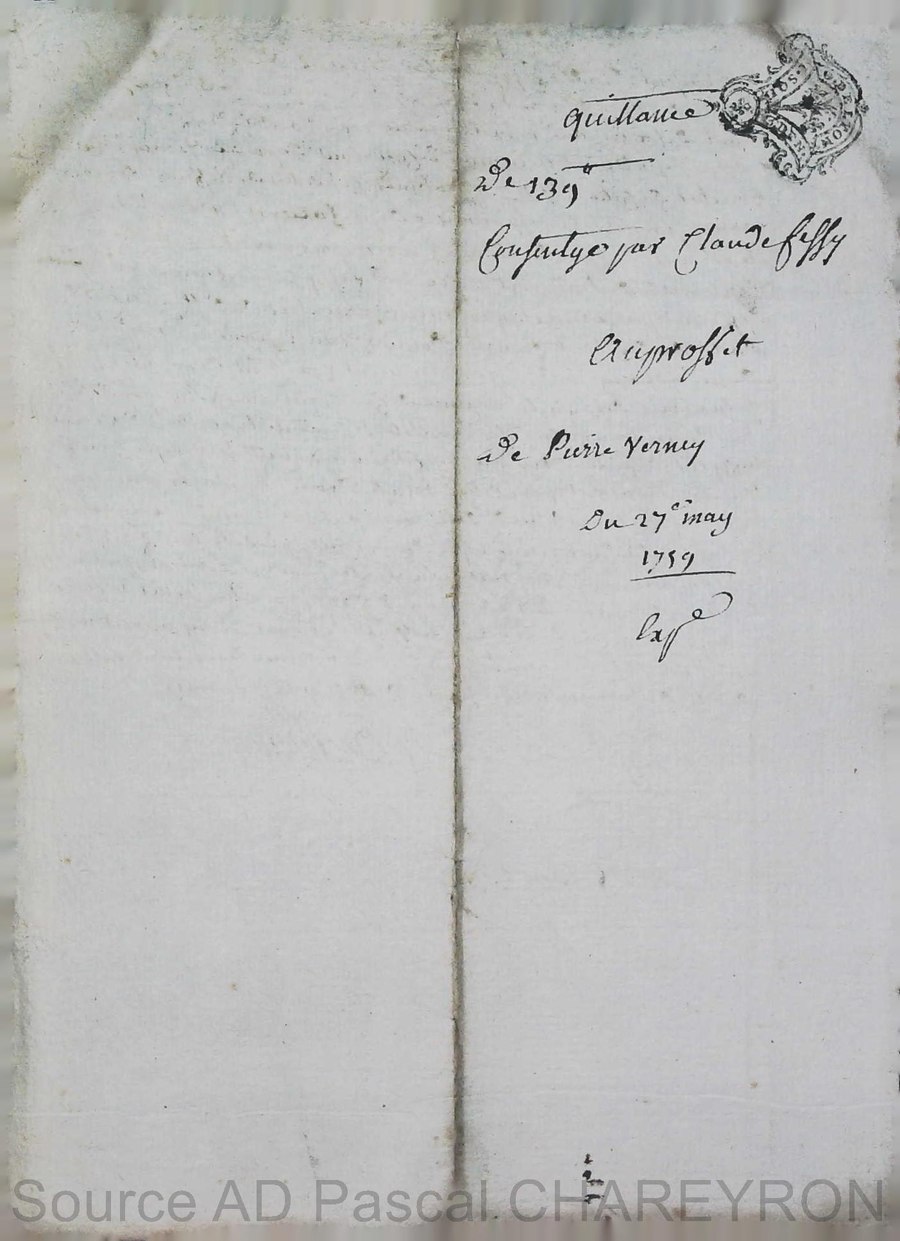 quittance
De 139ᵗᵗ
Consentye par Claude fessy
Au proffit
De Pierre Verney
Du 27ᵉ may
1759
Source AD Pascal CHAREYRON